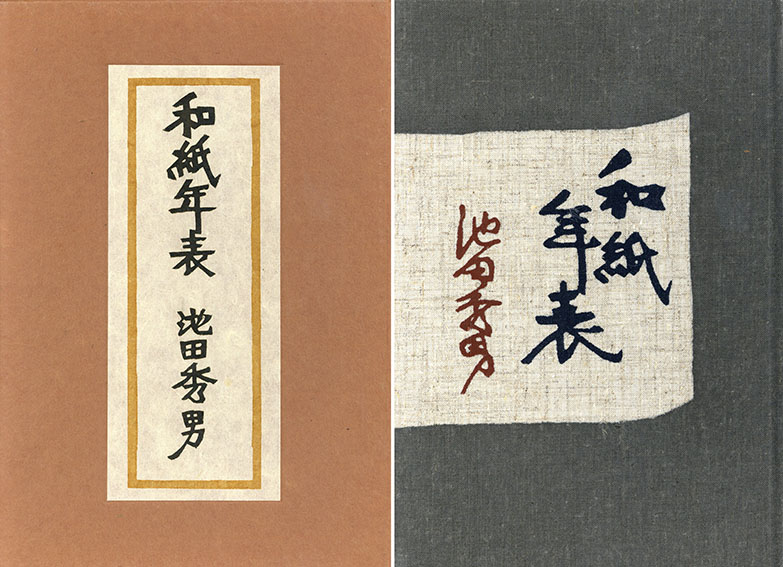 和紙年表 池田秀男
和紙
年表
池田秀男